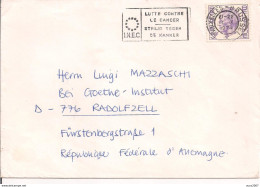 LUTTE CONTRE
LE CANCER
STRIJD TEGEN
DE KANKER
Herrn Luigi MAZZASCHI
Bei Goethe-Institut
D - 776 RADOLFZELL
Fürstenbergstraße 1
République Fédérale d'Allemagne